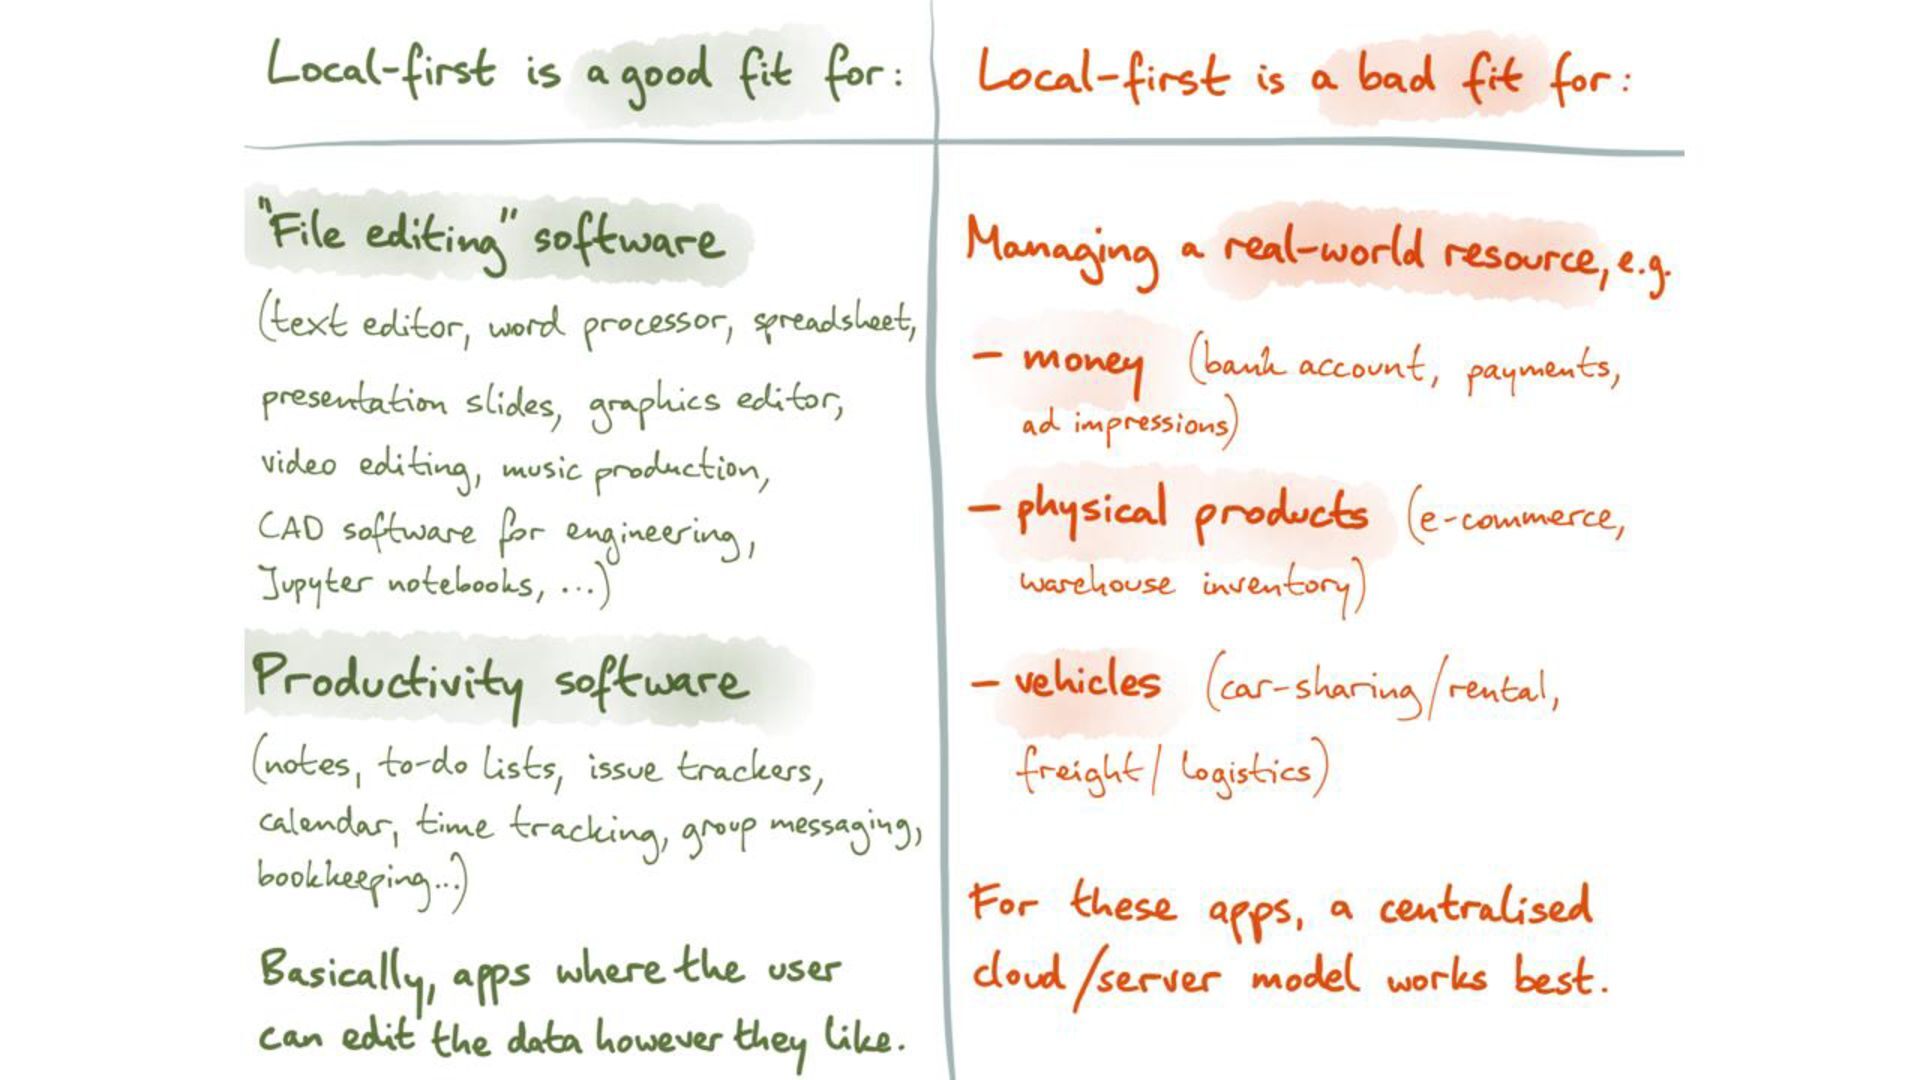 Local-first is a good fit for:
"File editing" software
(text editor, word processor, spreadsheet,
presentation slides, graphics editor,
video editing, music production,
CAD software for engineering,
Jupyter notebooks, ...)
Productivity software
(notes, to-do lists, issue trackers,
calendar, time tracking, group messaging,
bookkeeping...)
Basically, apps where the user
can edit the data however they like.
Local-first is a bad fit for:
Managing a real-world resource, e.g.
- money (bank account, payments,
ad impressions)
- physical products (e-commerce,
warehouse inventory)
- vehicles (car-sharing/rental,
freight/logistics)
For these apps, a centralised
cloud/server model works best.